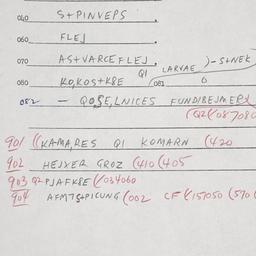 040 S+PINVEPS
060 FLEJ
070 AS+VARCE FLEJ, Q1 LARVAE )-S+NEK
080 KO,KOS+K8E 081 6
082 - QOSE,LNICES FUNDIBEJMEPS
(Q2(087080
901 ((KAMA,RES Q1 KOMARN (420
902 HEJXER GROZ (410(405
903 Q2 PJAFK8E ((034060
904 AFMTS+PICUNG (002 CF (157050 (590